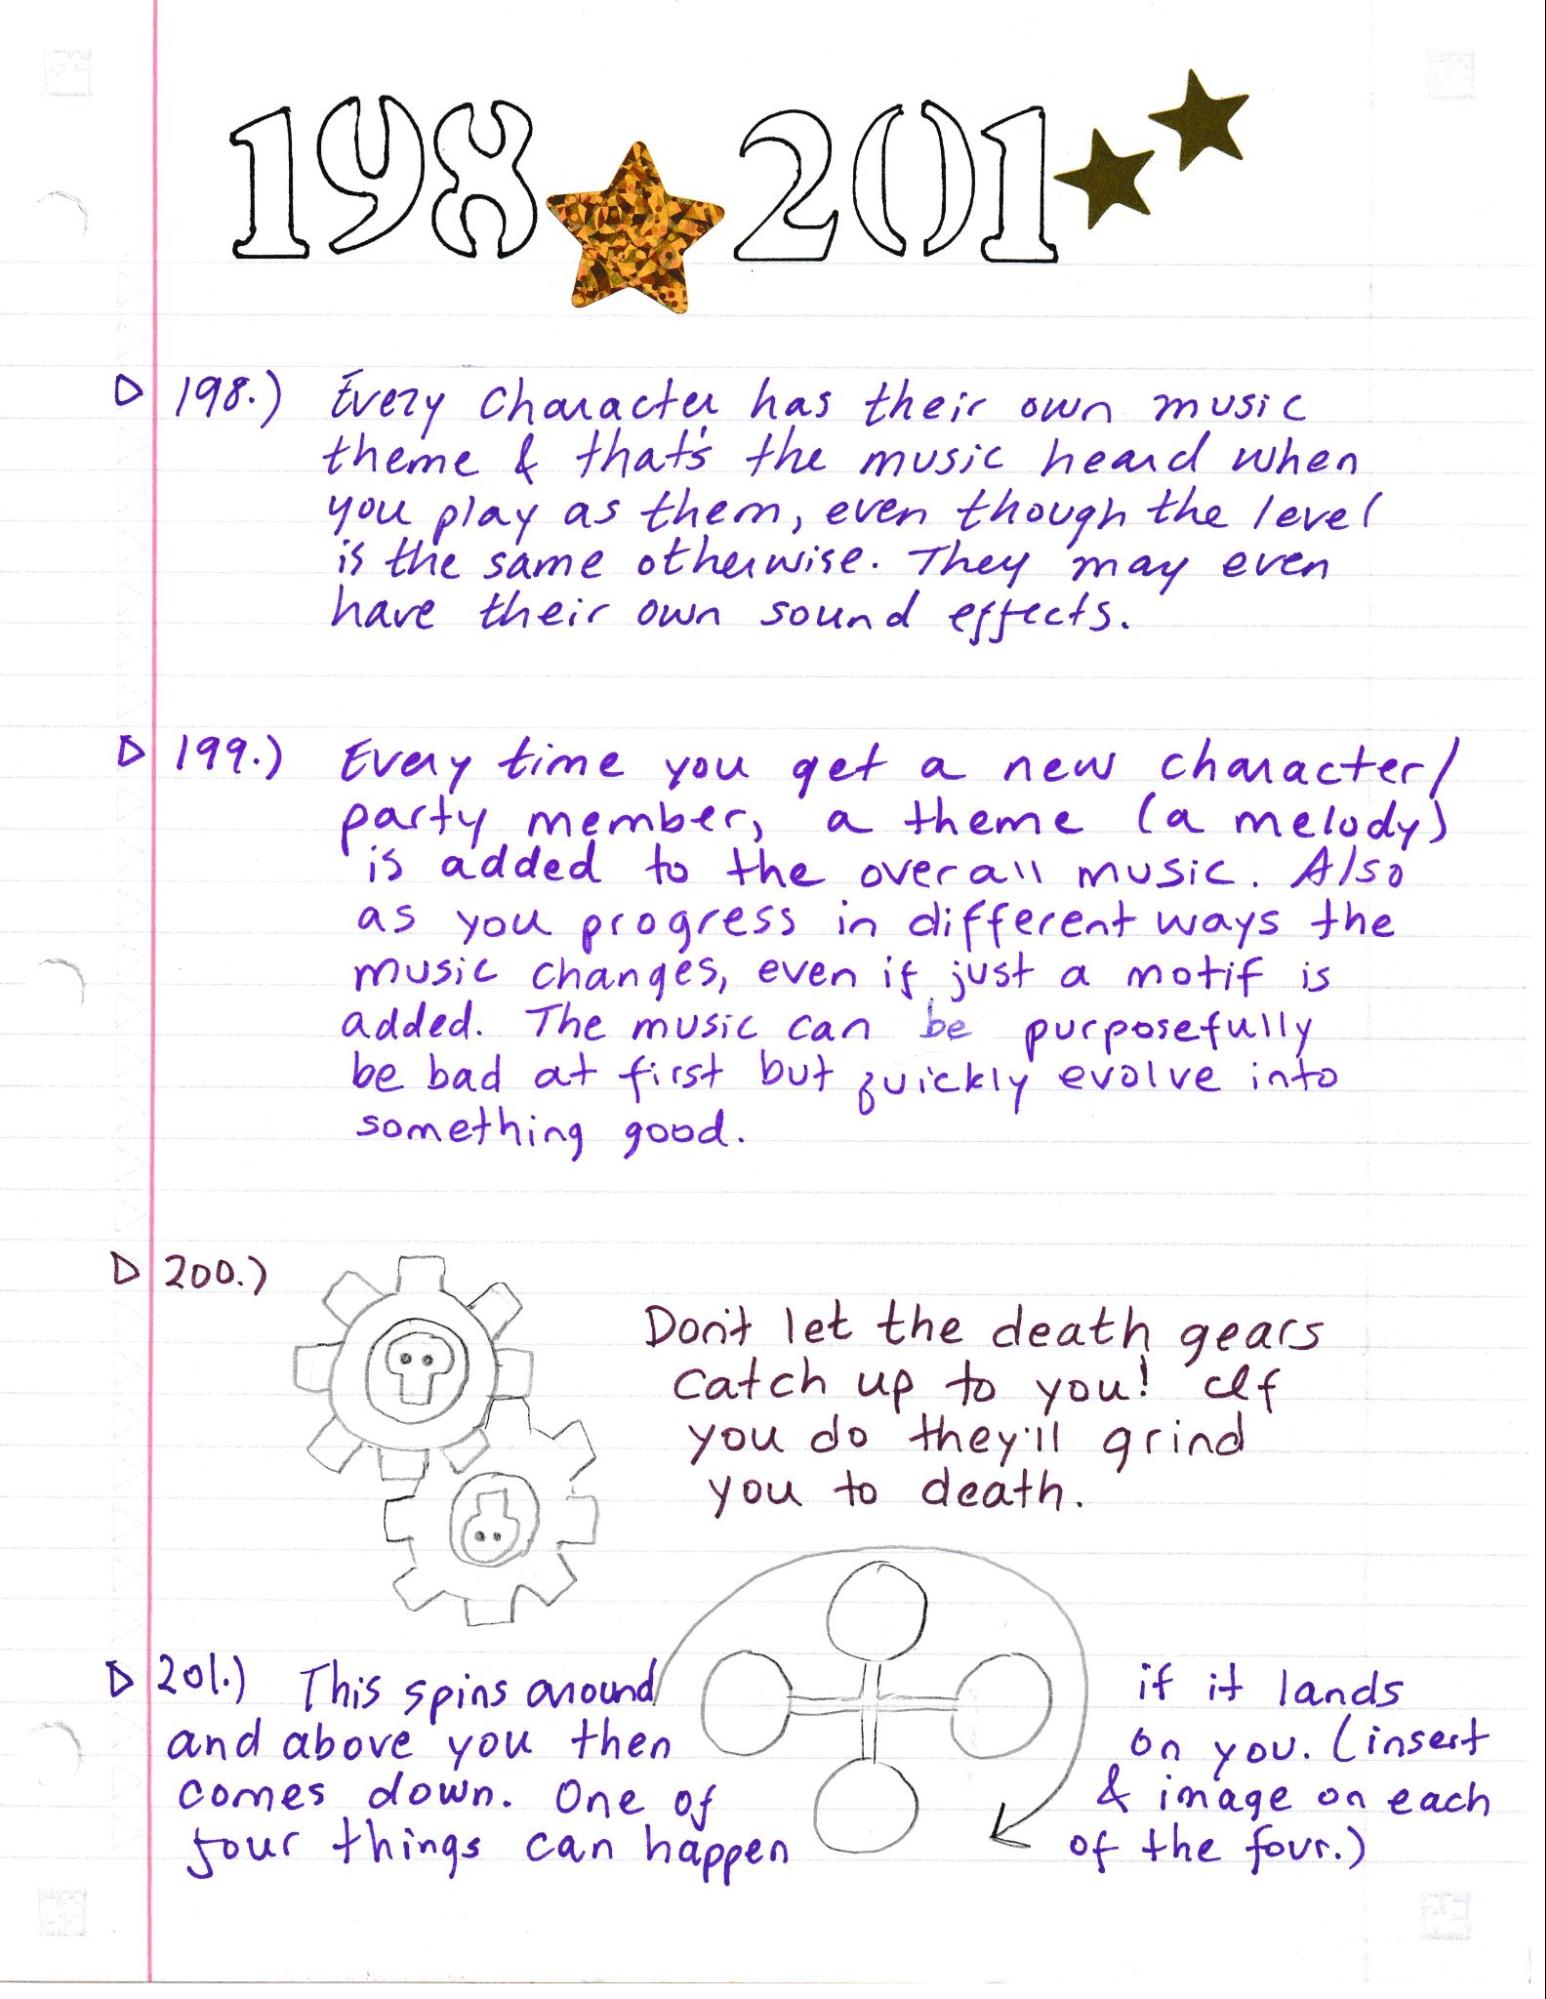 198 201
198.) Every character has their own music
theme & that's the music heard when
you play as them, even though the level
is the same otherwise. They may even
have their own sound effects.
199.) Every time you get a new character/
party member, a theme (a melody)
is added to the overall music. Also
as you progress in different ways the
music changes, even if just a motif is
added. The music can be purposefully
be bad at first but quickly evolve into
something good.
200.)
Don't let the death gears
catch up to you! If
you do they'll grind
you to death.
201.) This spins around
and above you then
comes down. One of
four things can happen
if it lands
on you. (insert
& image on each
of the four.)